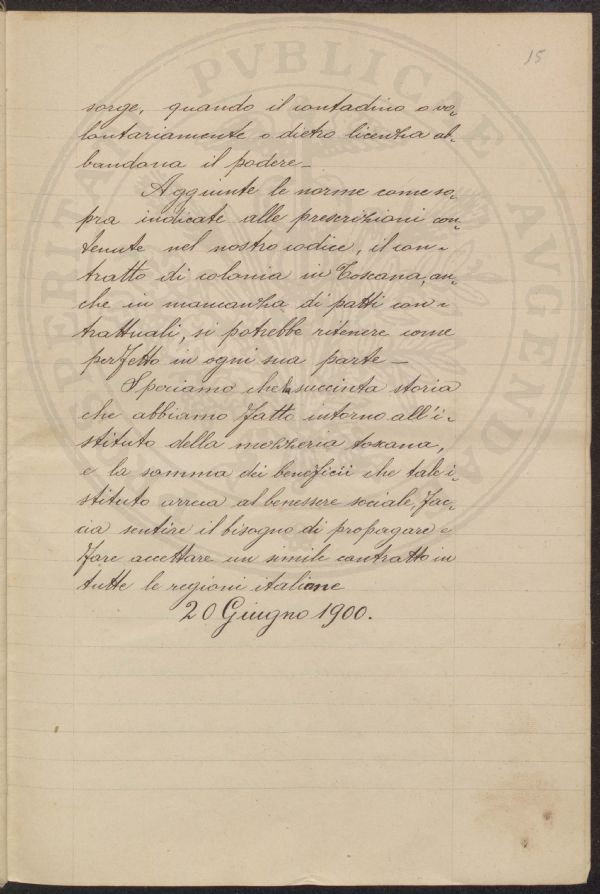 15
sorge, quando il contadino o vo-
lontariamente o dietro licenza ab-
bandona il podere_
Aggiunte le norme come so-
pra indicate alle prescrizioni con-
tenute nel nostro codice, il con-
tratto di colonia in Toscana, an-
che in mancanza di patti con-
trattuali, si potrebbe ritenere come
perfetto in ogni sua parte_
Speriamo che la succinta storia
che abbiamo fatto intorno all'i-
stituto della mezzeria toscana,
e la somma dei beneficii che tale i-
stituto arreca al benessere sociale, fac-
cia sentire il bisogno di propagare e
fare accettare un simile contratto in
tutte le regioni italiane
20 Giugno 1900.
PVBLICAE AVGENDA